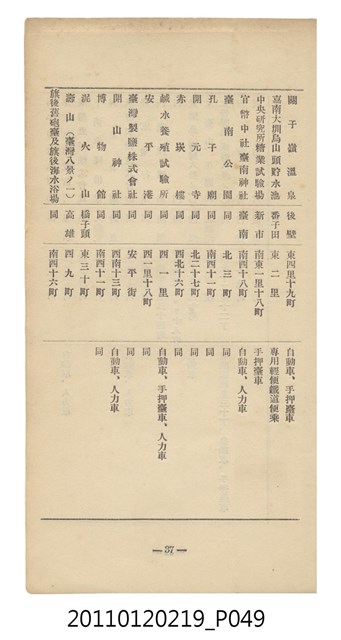 關子嶺溫泉 後壁 東四里十九町 自動車、手押臺車
嘉南大圳烏山頭貯水池 番子田 東二里 專用輕便鐵道便乘
中央研究所糖業試驗場 新市 南東一里十八町 手押臺車
官幣中社臺南神社 臺南 南四十八町 自動車、人力車
臺南公園 同 北三町 同
孔子廟 同 南西十一町 同
開元寺 同 北二十七町 同
赤崁樓 同 西北十六町 同
鹹水養殖試驗所 同 西一里 自動車、手押臺車、人力車
安平港 同 西一里十八町 同
臺灣製鹽株式會社 同 安平街 同
開山神社 同 西南十三町 自動車、人力車
博物館 同 南西十一町 同
泥火山 橋子頭 東三十町
壽山(臺灣八景ノ一) 高雄 西九町
旗後舊砲臺及旗後海水浴場 同 南四十六町
— 37 —
20110120219_P049